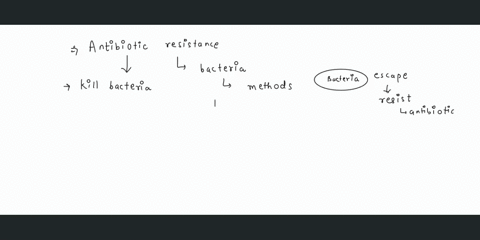 ⇒ Antibiotic resistance
↳ bacteria
→ kill bacteria
↳ methods
Bacteria escape
resist
↳ antibiotic